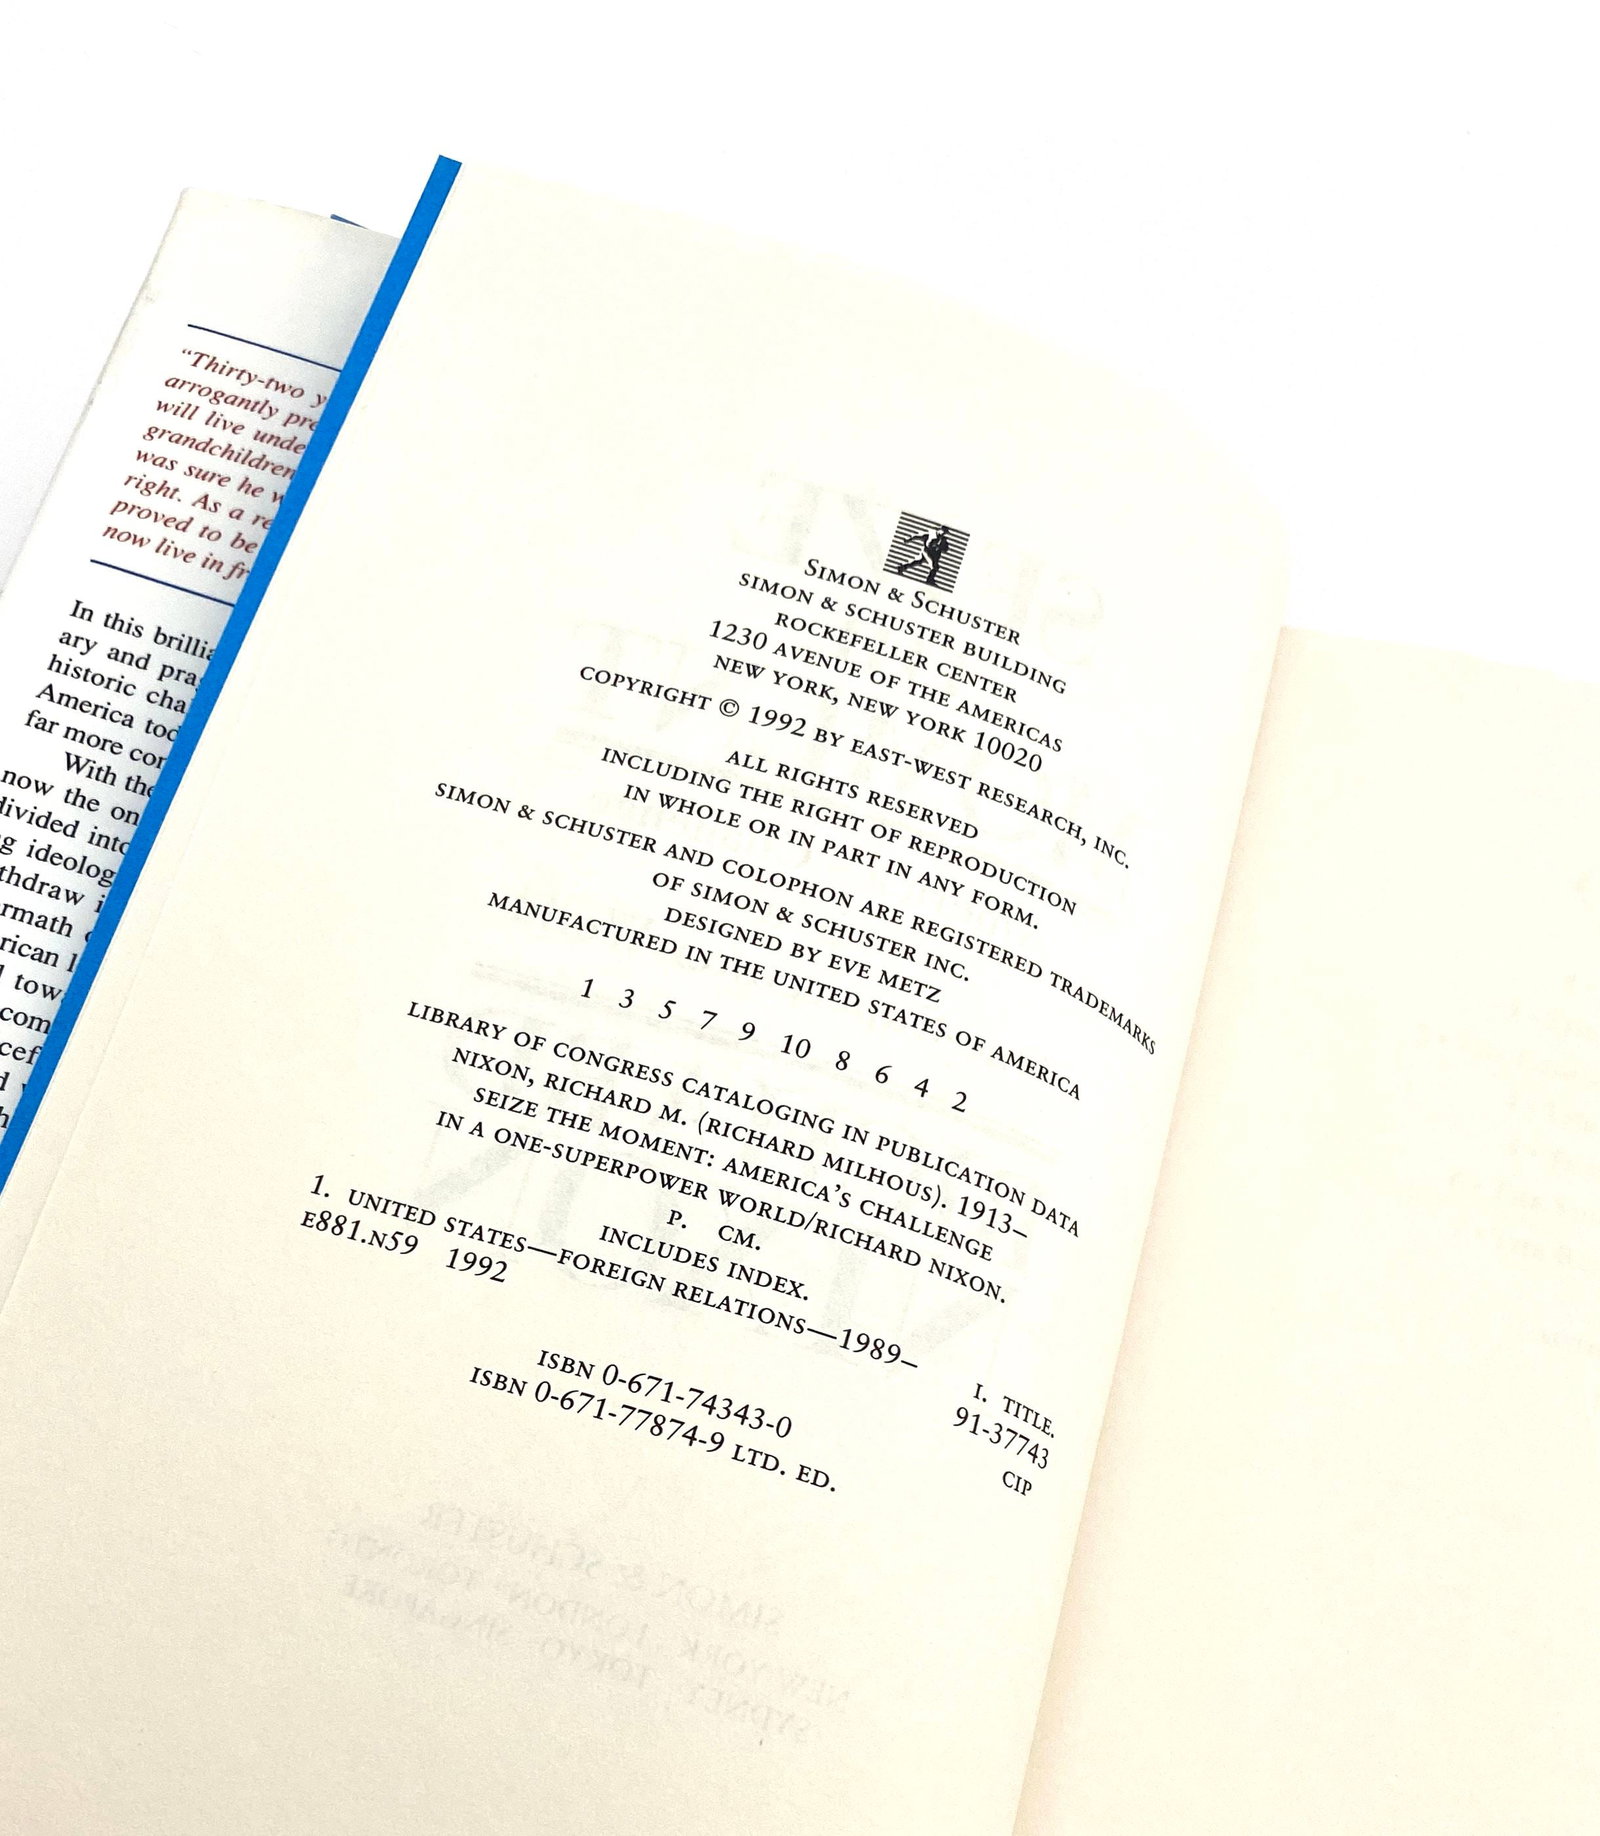 “Thirty-two
arrogantly
will live
grandchildren
was sure he
right. As a
proved to be
now live in
In this
ary and
historic
America
far more
With
now the
SIMON & SCHUSTER
SIMON & SCHUSTER BUILDING
ROCKEFELLER CENTER
1230 AVENUE OF THE AMERICAS
NEW YORK, NEW YORK 10020
COPYRIGHT © 1992 BY EAST-WEST RESEARCH, INC.
ALL RIGHTS RESERVED
INCLUDING THE RIGHT OF REPRODUCTION
IN WHOLE OR IN PART IN ANY FORM.
SIMON & SCHUSTER AND COLOPHON ARE REGISTERED TRADEMARKS
OF SIMON & SCHUSTER INC.
DESIGNED BY EVE METZ
MANUFACTURED IN THE UNITED STATES OF AMERICA
1 3 5 7 9 10 8 6 4 2
LIBRARY OF CONGRESS CATALOGING IN PUBLICATION DATA
NIXON, RICHARD M. (RICHARD MILHOUS). 1913–
SEIZE THE MOMENT: AMERICA’S CHALLENGE
IN A ONE-SUPERPOWER WORLD/RICHARD NIXON.
P. CM.
INCLUDES INDEX.
1. UNITED STATES—FOREIGN RELATIONS—1989– I. TITLE.
E881.N59 1992 91-37743
CIP
ISBN 0-671-74343-0
ISBN 0-671-77874-9 LTD. ED.